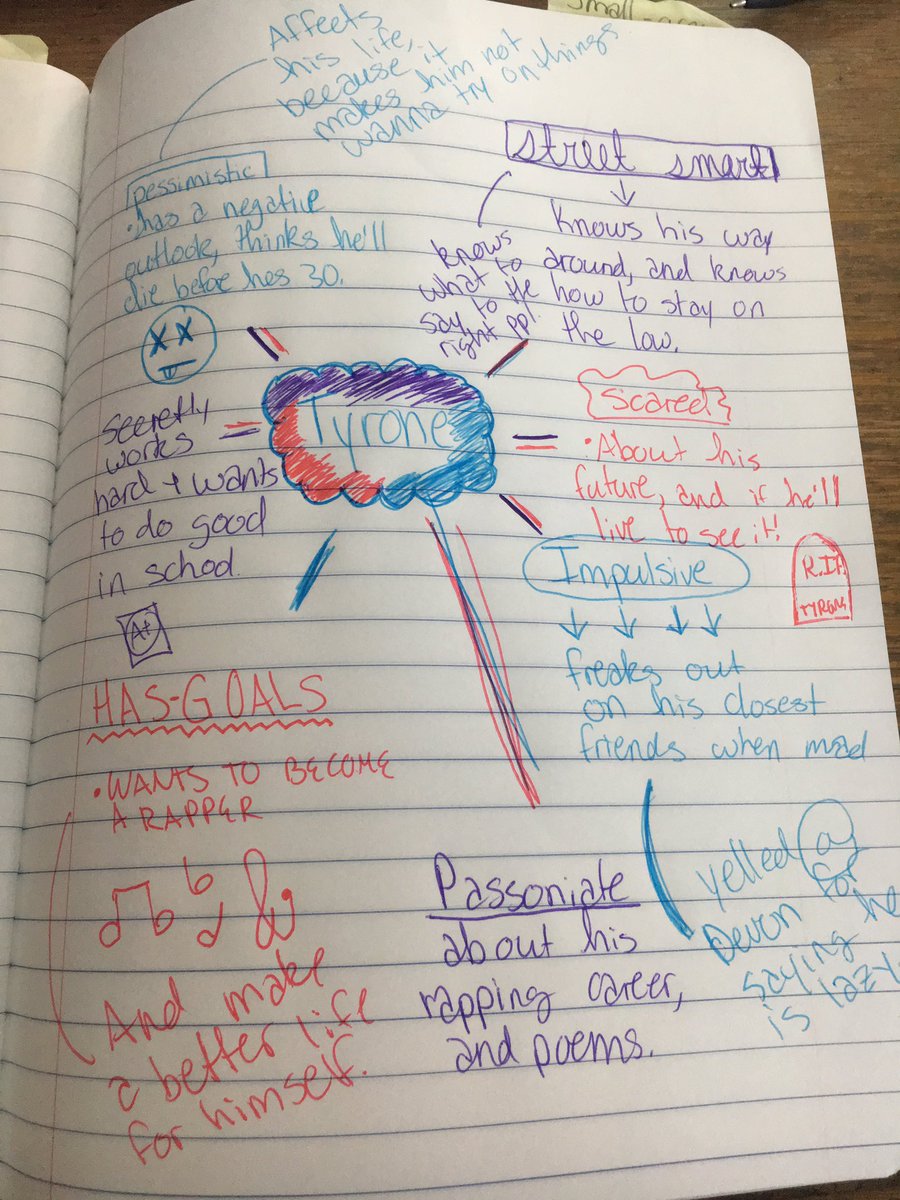 small
Affects
his life,
because it
makes him not
wanna try on things
pessimistic
•has a negative
outlook, thinks he'll
die before hes 30.
street smart
knows his way
around, and knows
how to stay on
the law.
knows
what to
say to the
right ppl.
Tyrone
Secretly
works
hard + wants
to do good
in school.
A+
Scared
•About his
future, and if he'll
live to see it!
R.I.P.
TYRONE
Impulsive
freaks out
on his closest
friends when mad
yelled @
Devon for
saying he
is lazy
HAS-GOALS
•WANTS TO BECOME
A RAPPER
And make
a better life
for himself.
Passoniate
about his
rapping career,
and poems.